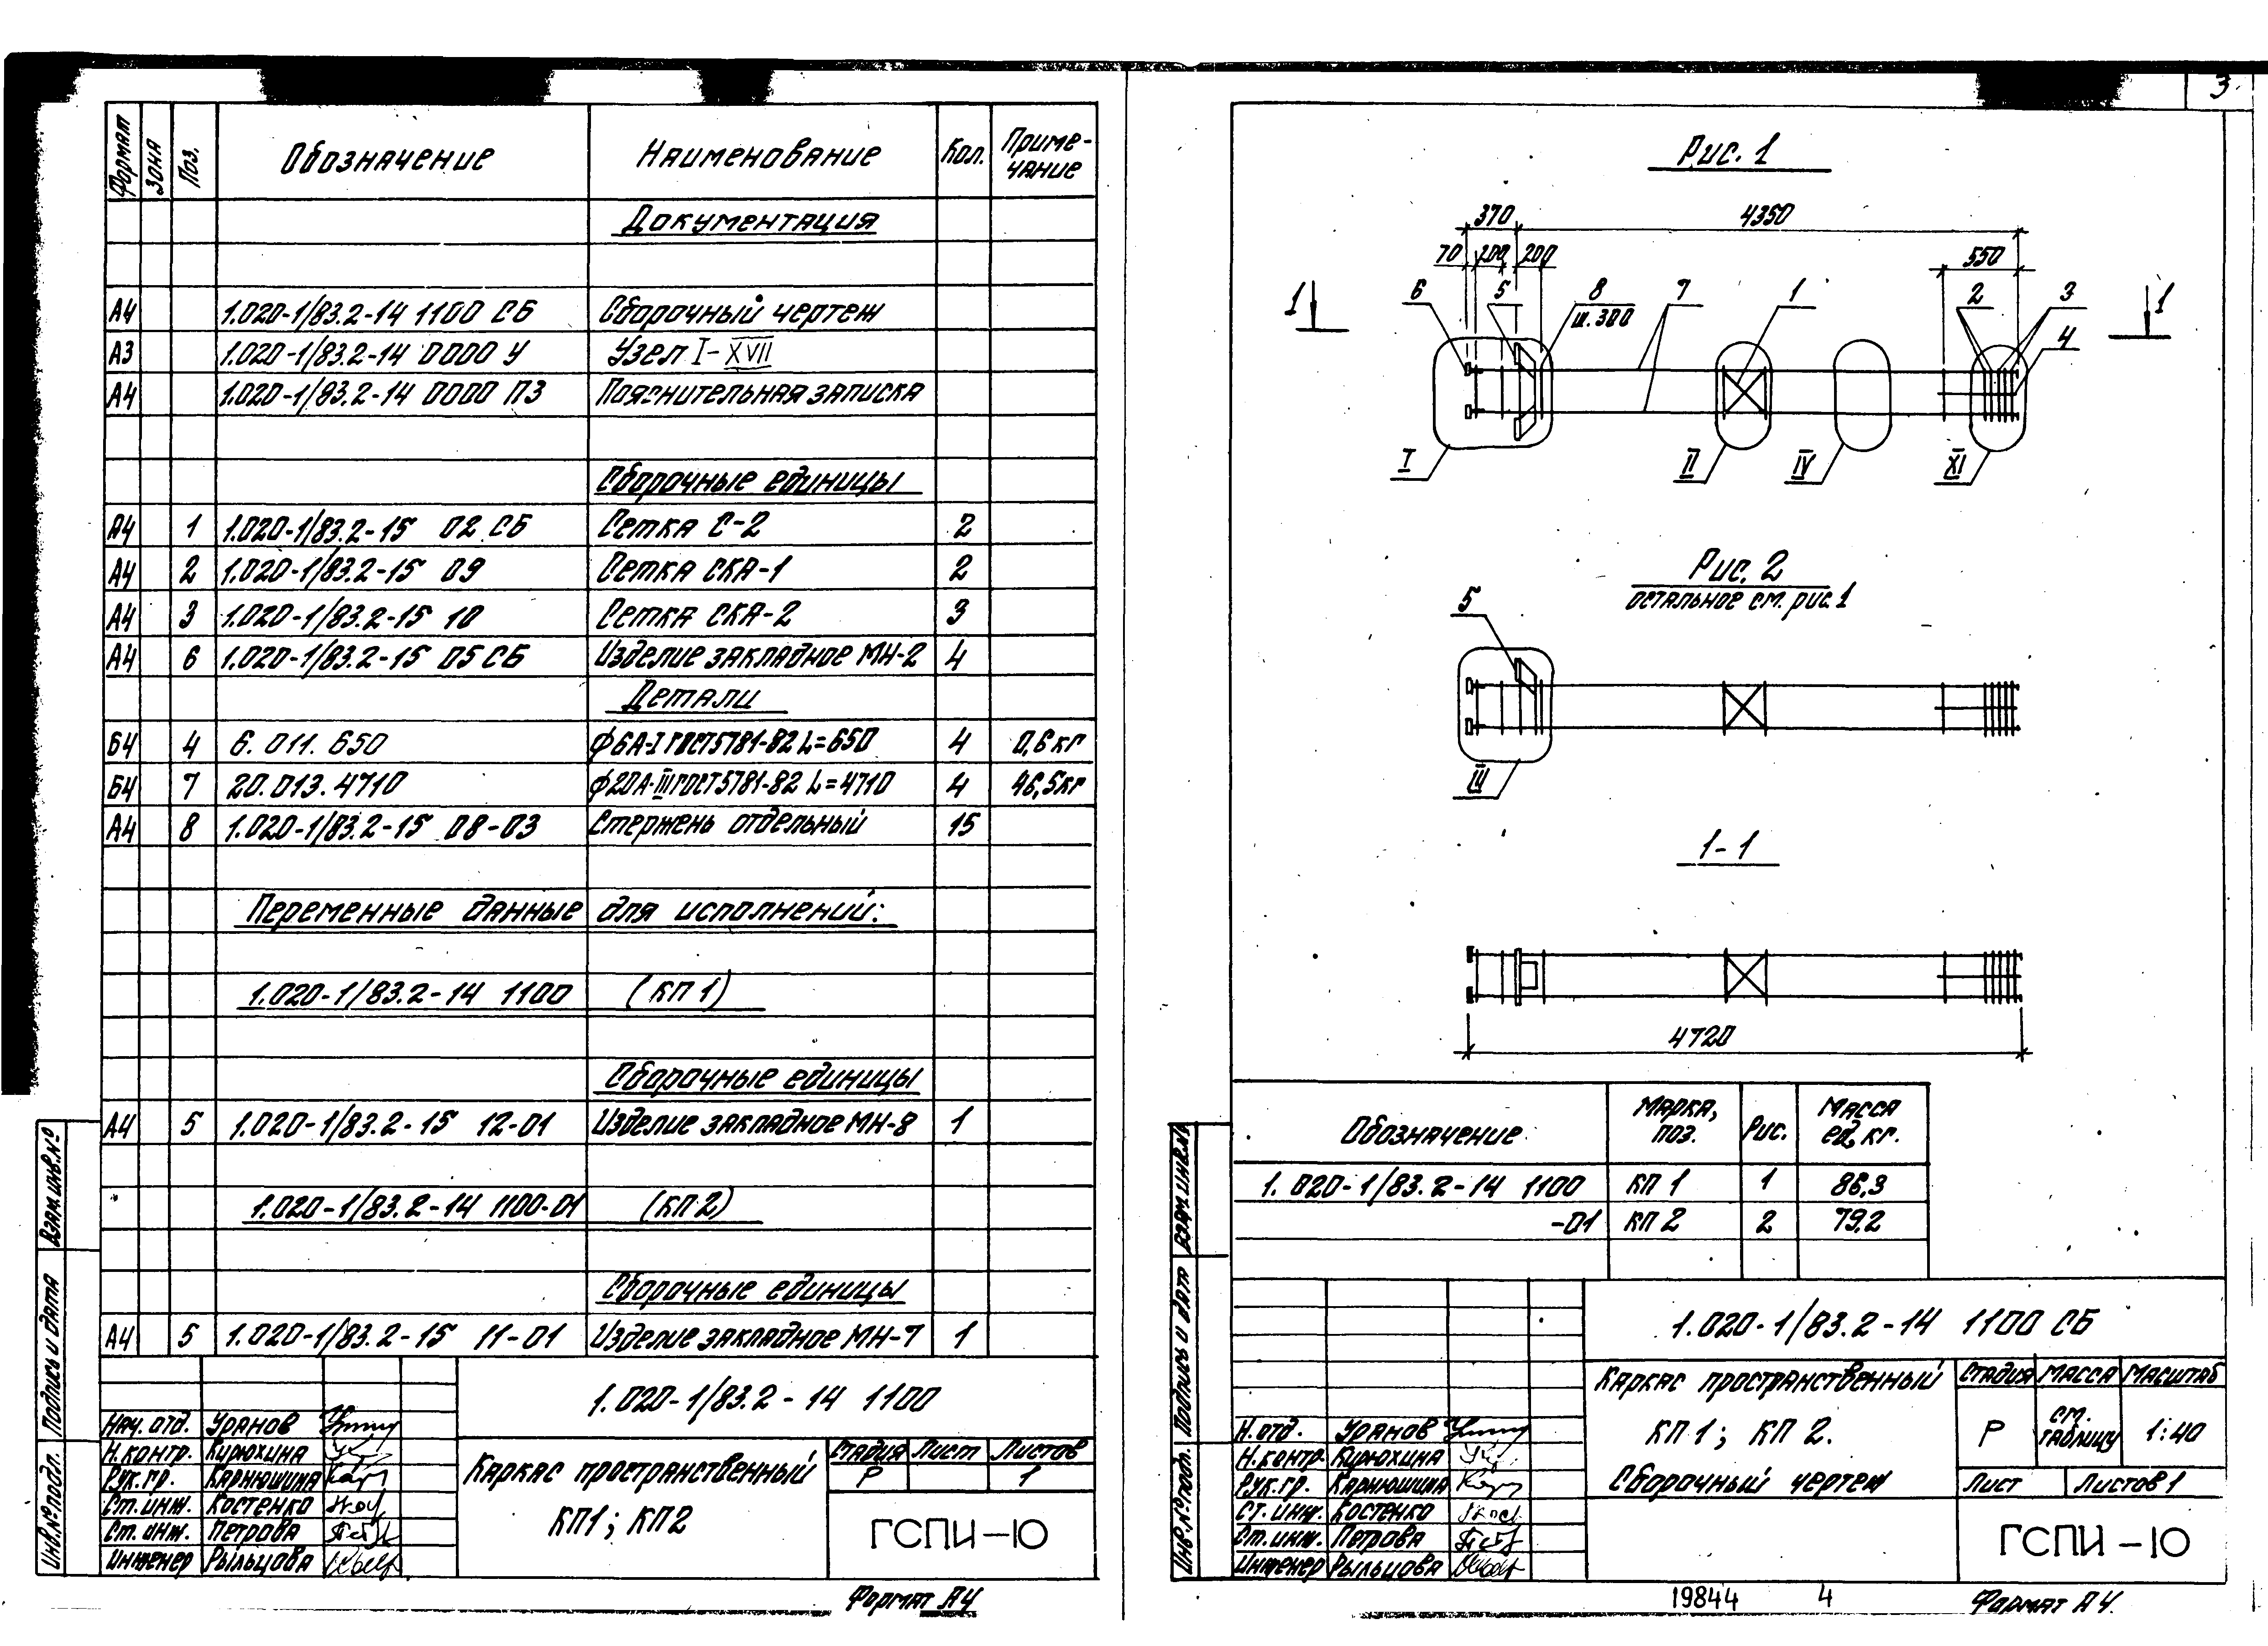 Формат Зона Поз. Обозначение Наименование Кол. Приме-
чание
Документация
А4 1.020-1/83.2-14 1100 СБ Сборочный чертеж
А3 1.020-1/83.2-14 0000 У Узел I-XVII
А4 1.020-1/83.2-14 0000 ПЗ Пояснительная записка
Сборочные единицы
А4 1 1.020-1/83.2-15 02 СБ Сетка С-2 2
А4 2 1.020-1/83.2-15 09 Сетка СКА-1 2
А4 3 1.020-1/83.2-15 10 Сетка СКА-2 3
А4 6 1.020-1/83.2-15 05 СБ Изделие закладное МН-2 4
Детали
Б4 4 6. 011. 650 ϕ6А-I ГОСТ5781-82 L=650 4 0,6кг
Б4 7 20. 013. 4710 ϕ20А-III ГОСТ5781-82 L=4710 4 46,5кг
А4 8 1.020-1/83.2-15 08-03 Стержень отдельный 15
Переменные данные для исполнений:
1.020-1/83.2-14 1100 (КП 1)
Сборочные единицы
А4 5 1.020-1/83.2-15 12-01 Изделие закладное МН-8 1
1.020-1/83.2-14 1100-01 (КП 2)
Сборочные единицы
А4 5 1.020-1/83.2-15 11-01 Изделие закладное МН-7 1
Взам.инв.№
Подпись и дата
Инв.№подл.
1.020-1/83.2-14 1100
Нач. отд. Уранов
Н.контр. Кирюхина
Рук.гр. Карнюшина
Ст.инж. Костенко
Ст.инж. Петрова
Инженер Рыльцова
Каркас пространственный
КП1; КП2
Стадия Лист Листов
Р 1
ГСПИ-10
Формат А4
3
Рис. 1
370 4350
70 200 200 550
1 6 5 8 7 1 2 3 1
ш. 300
4
I II IV XI
Рис. 2
остальное см. рис. 1
5
III
1-1
4720
Обозначение Марка, поз. Рис. Масса ед, кг.
1.020-1/83.2-14 1100 КП 1 1 86,3
-01 КП 2 2 79,2
Взам.инв.№
Подпись и дата
Инв.№подл.
1.020-1/83.2-14 1100 СБ
Н.отд. Уранов
Н.контр. Кирюхина
Рук.гр. Карнюшина
Ст.инж. Костенко
Ст.инж. Петрова
Инженер Рыльцова
Каркас пространственный
КП 1; КП 2.
Сборочный чертеж
Стадия Масса Масштаб
Р см. таблицу 1:40
Лист Листов 1
ГСПИ-10
19844 4 Формат А4.